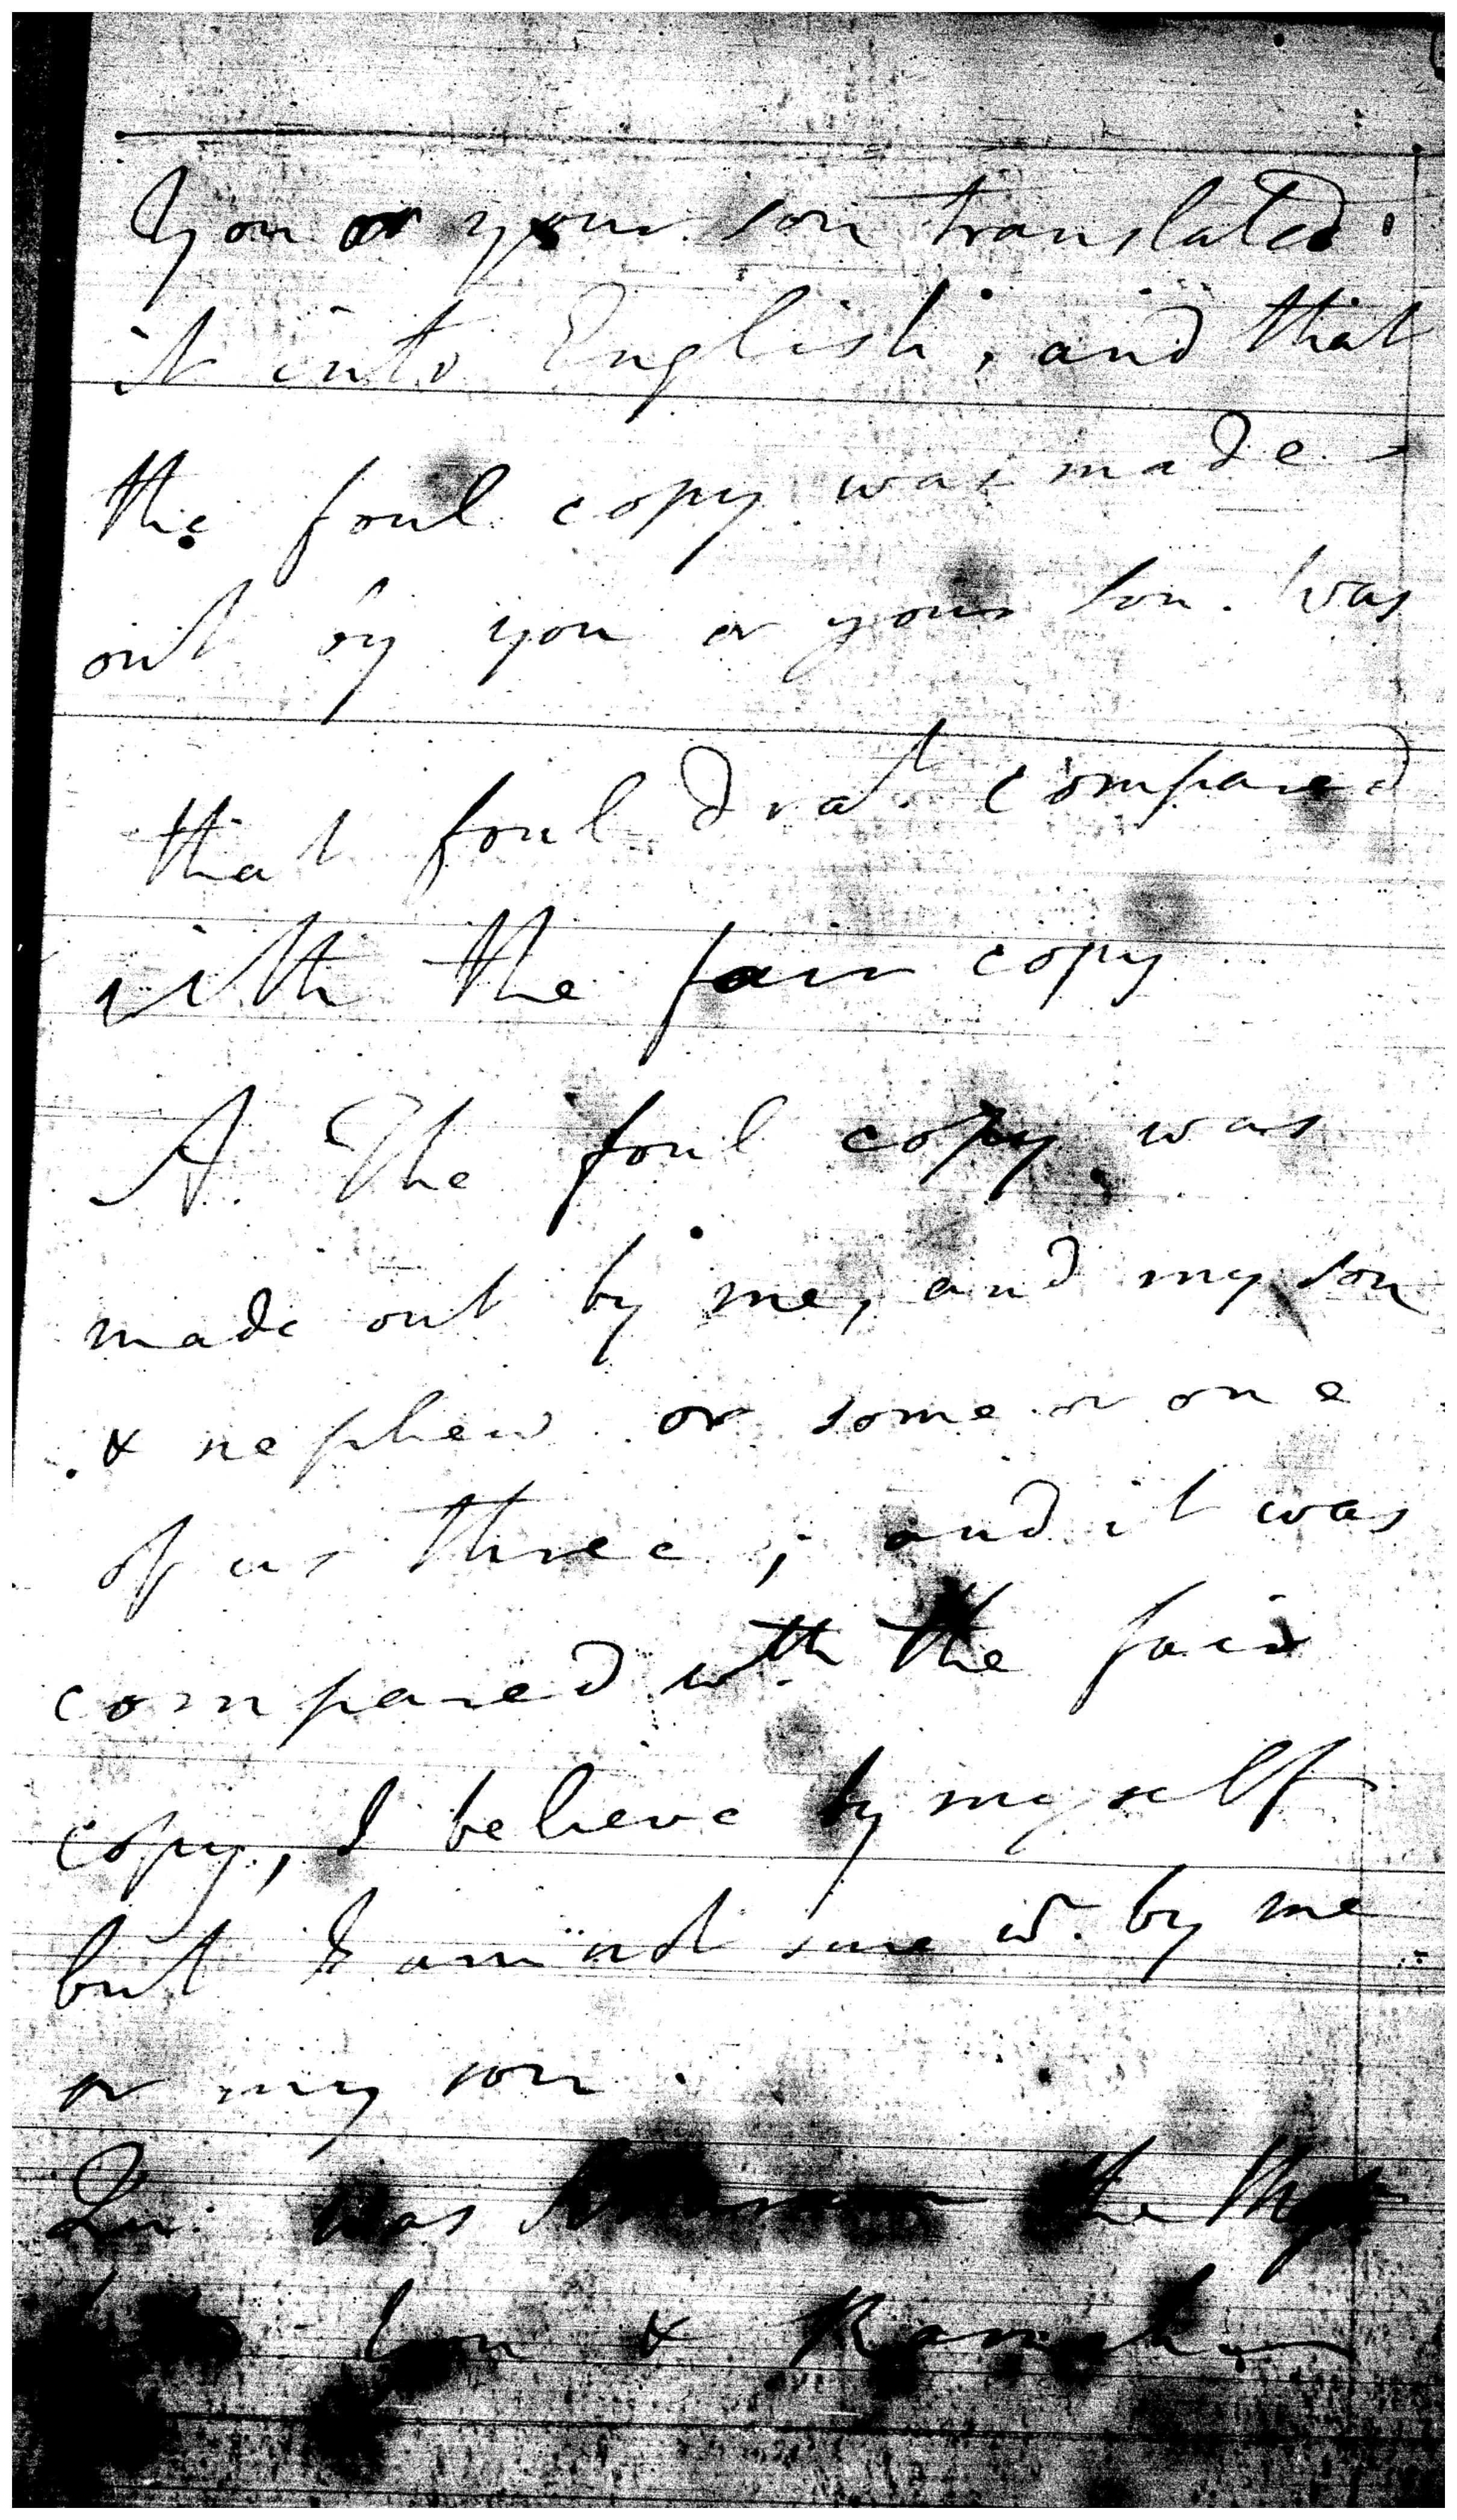 You or your son translated
it into English, and that
the foul copy was made
out by you or your son. Was
that foul drat compared
with the fair copy
A. The foul copy was
made out by me, and my son
& nephew or some or one
of us three; and it was
compared wth the fair
copy, I believe by myself
but I am not sure wr. by me
or my son.
Qu: Was the
son & Ramchurn